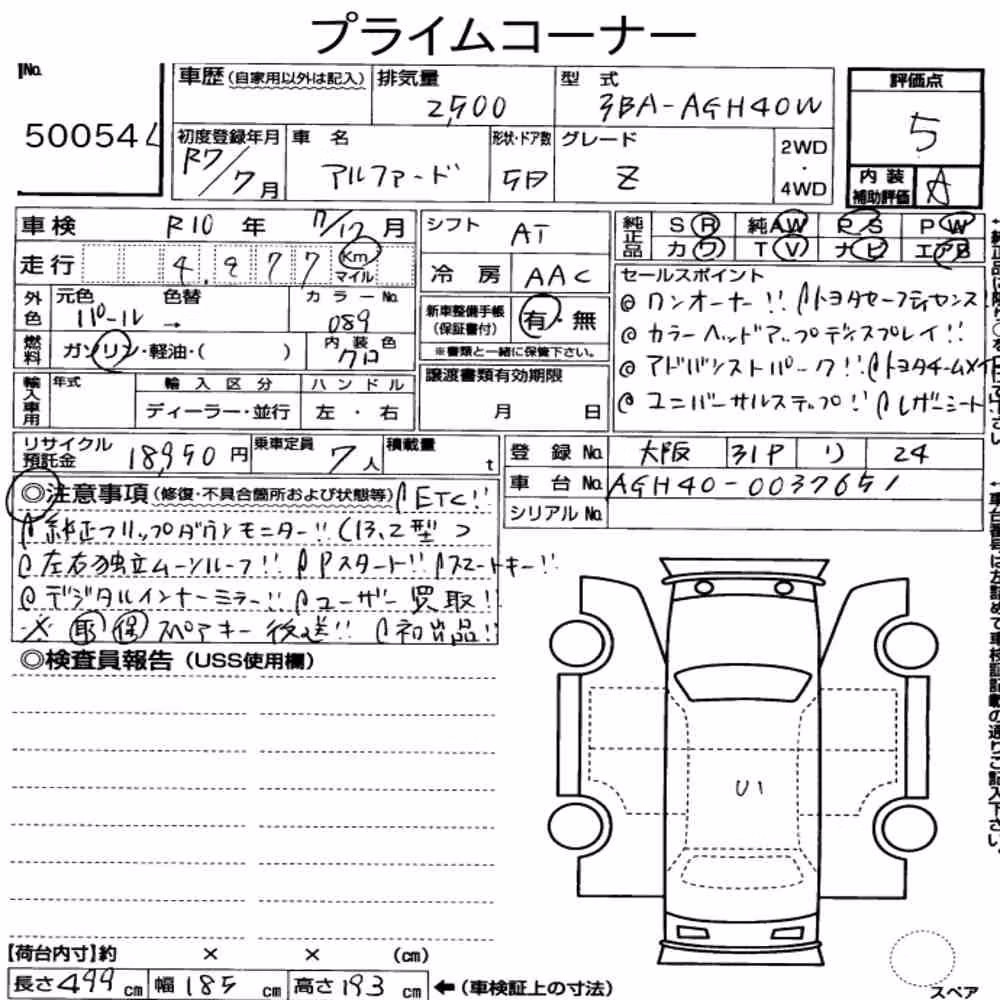 プライムコーナー
No.
50054
車歴 (自家用以外は記入)
排気量 2,500
型式 3BA-AGH40W
評価点 5
初度登録年月 R7/7月
車名 アルファード
形状・ドア数 5D
グレード Z
2WD・4WD
内装補助評価 A
車検 R10年 7/12月
シフト AT
純正品 SR 純AW PS PW
カワ TV ナビ エアB
走行 4,977 Km マイル
冷房 AAC
セールスポイント
外色 元色 パール 色替 → カラーNo. 089
新車整備手帳(保証書付) 有・無
※書類と一緒に保管下さい。
◎ワンオーナー!! トヨタセーフティセンス
◎カラーヘッドアップディスプレイ!!
◎アドバンストパーク!! トヨタチームメイト
◎ユニバーサルステップ!! レザーシート
燃料 ガソリン・軽油・( )
内装色 クロ
輸入車用 年式 輸入区分 ハンドル
ディーラー・並行 左・右
譲渡書類有効期限
月 日
リサイクル預託金 18,950円
乗車定員 7人
積載量 t
登録No. 大阪 31P リ 24
車台No. AGH40-0037651
シリアルNo.
◎注意事項 (修復・不具合箇所および状態等) ETC!!
純正フリップダウンモニター!! (13.2型)
左右独立ムーンルーフ!! Pスタート!! スマートキー!!
◎デジタルインナーミラー!! ユーザー買取!!
※ 取 保 スペアキー後送!! 初出品!!
◎検査員報告 (USS使用欄)
U1
【荷台内寸】約 × × (cm)
長さ499cm 幅185cm 高さ193cm ←(車検証上の寸法)
スペア
←車台番号は左詰めで車検証記載の通りご記入下さい。